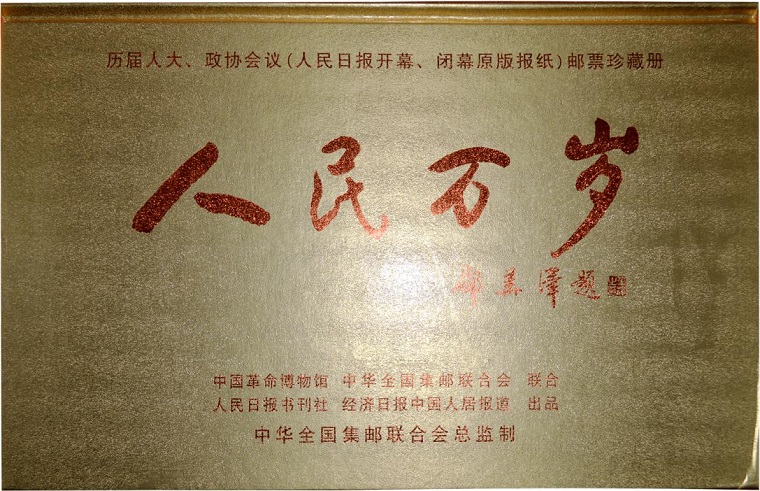 历届人大、政协会议(人民日报开幕、闭幕原版报纸)邮票珍藏册
人民万岁
中国革命博物馆 中华全国集邮联合会 联合
人民日报书刊社 经济日报中国人居报道 出品
中华全国集邮联合会总监制